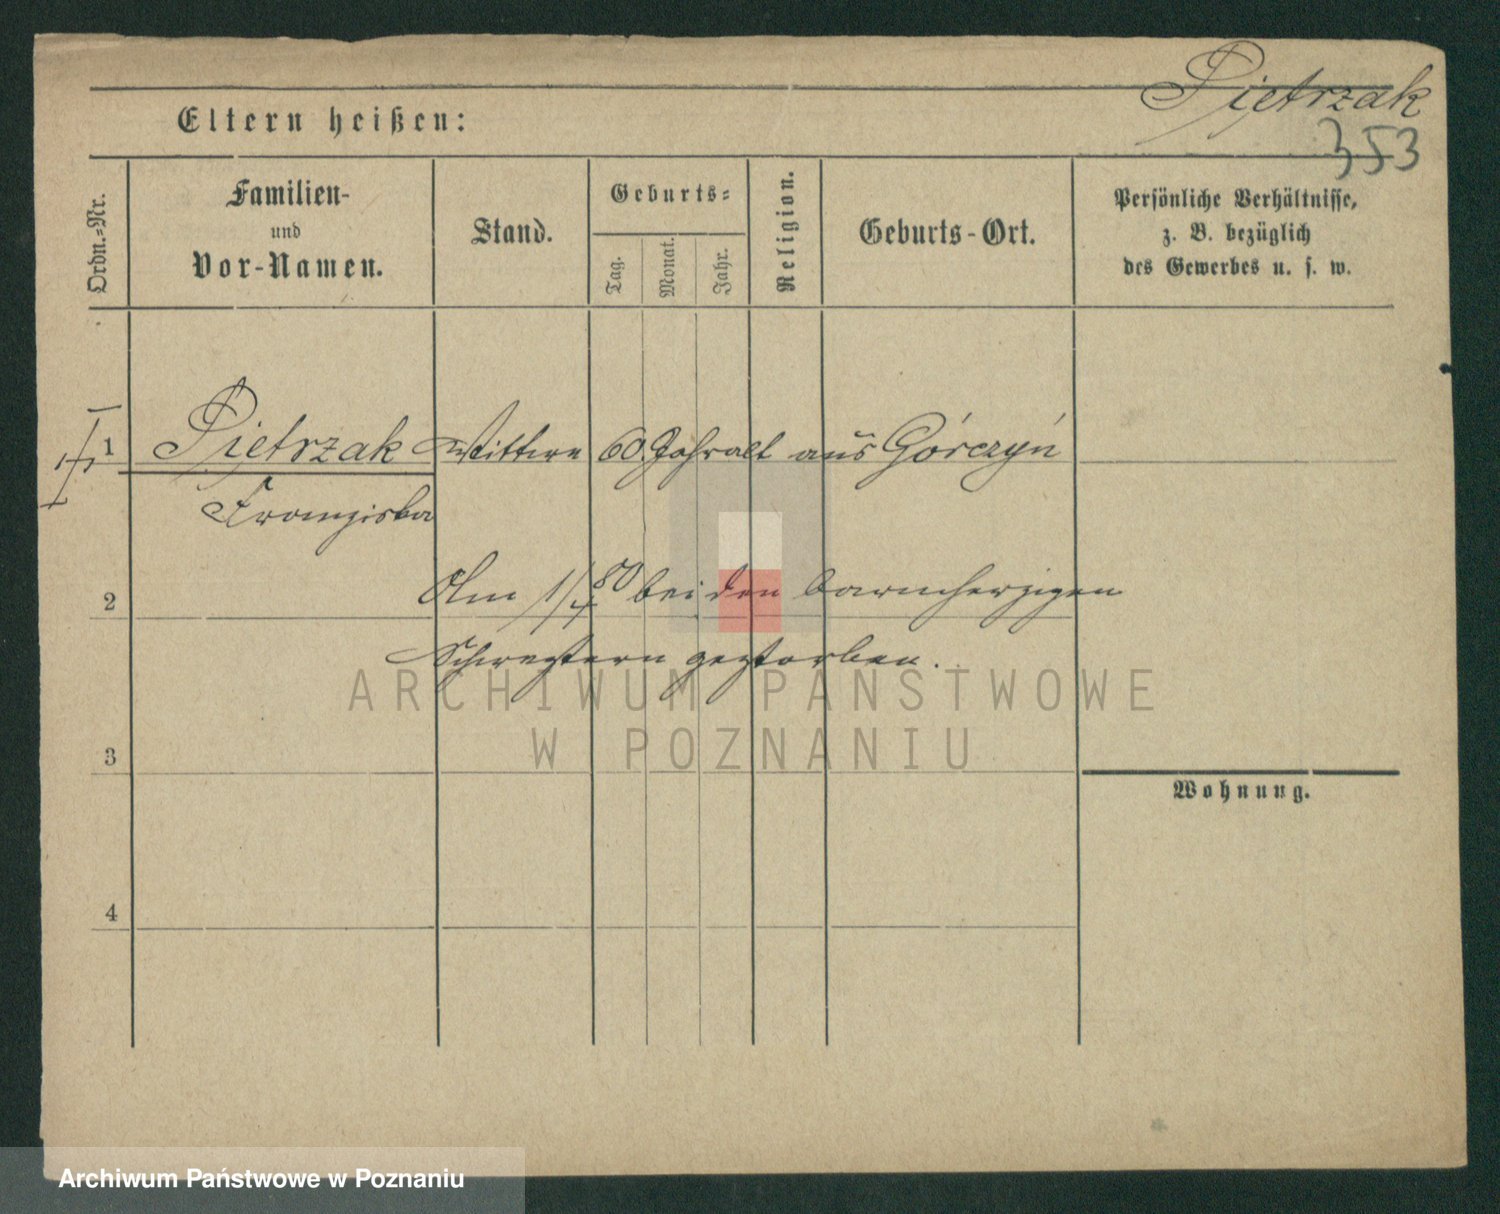 Pietrzak
Eltern heißen:
353
Ordn.-Nr.
Familien-
und
Vor-Namen.
Stand.
Geburts-
Tag.
Monat.
Jahr.
Religion.
Geburts-Ort.
Persönliche Verhältnisse,
z. B. bezüglich
des Gewerbes u. s. w.
1 Pietrzak Wittwe 60 Jahr alt aus Górczyń
Franziska
2 Am 1/4 80 bei den barmherzigen
Schwestern gestorben.
ARCHIWUM PAŃSTWOWE
W POZNANIU
3
Wohnung.
4
Archiwum Państwowe w Poznaniu